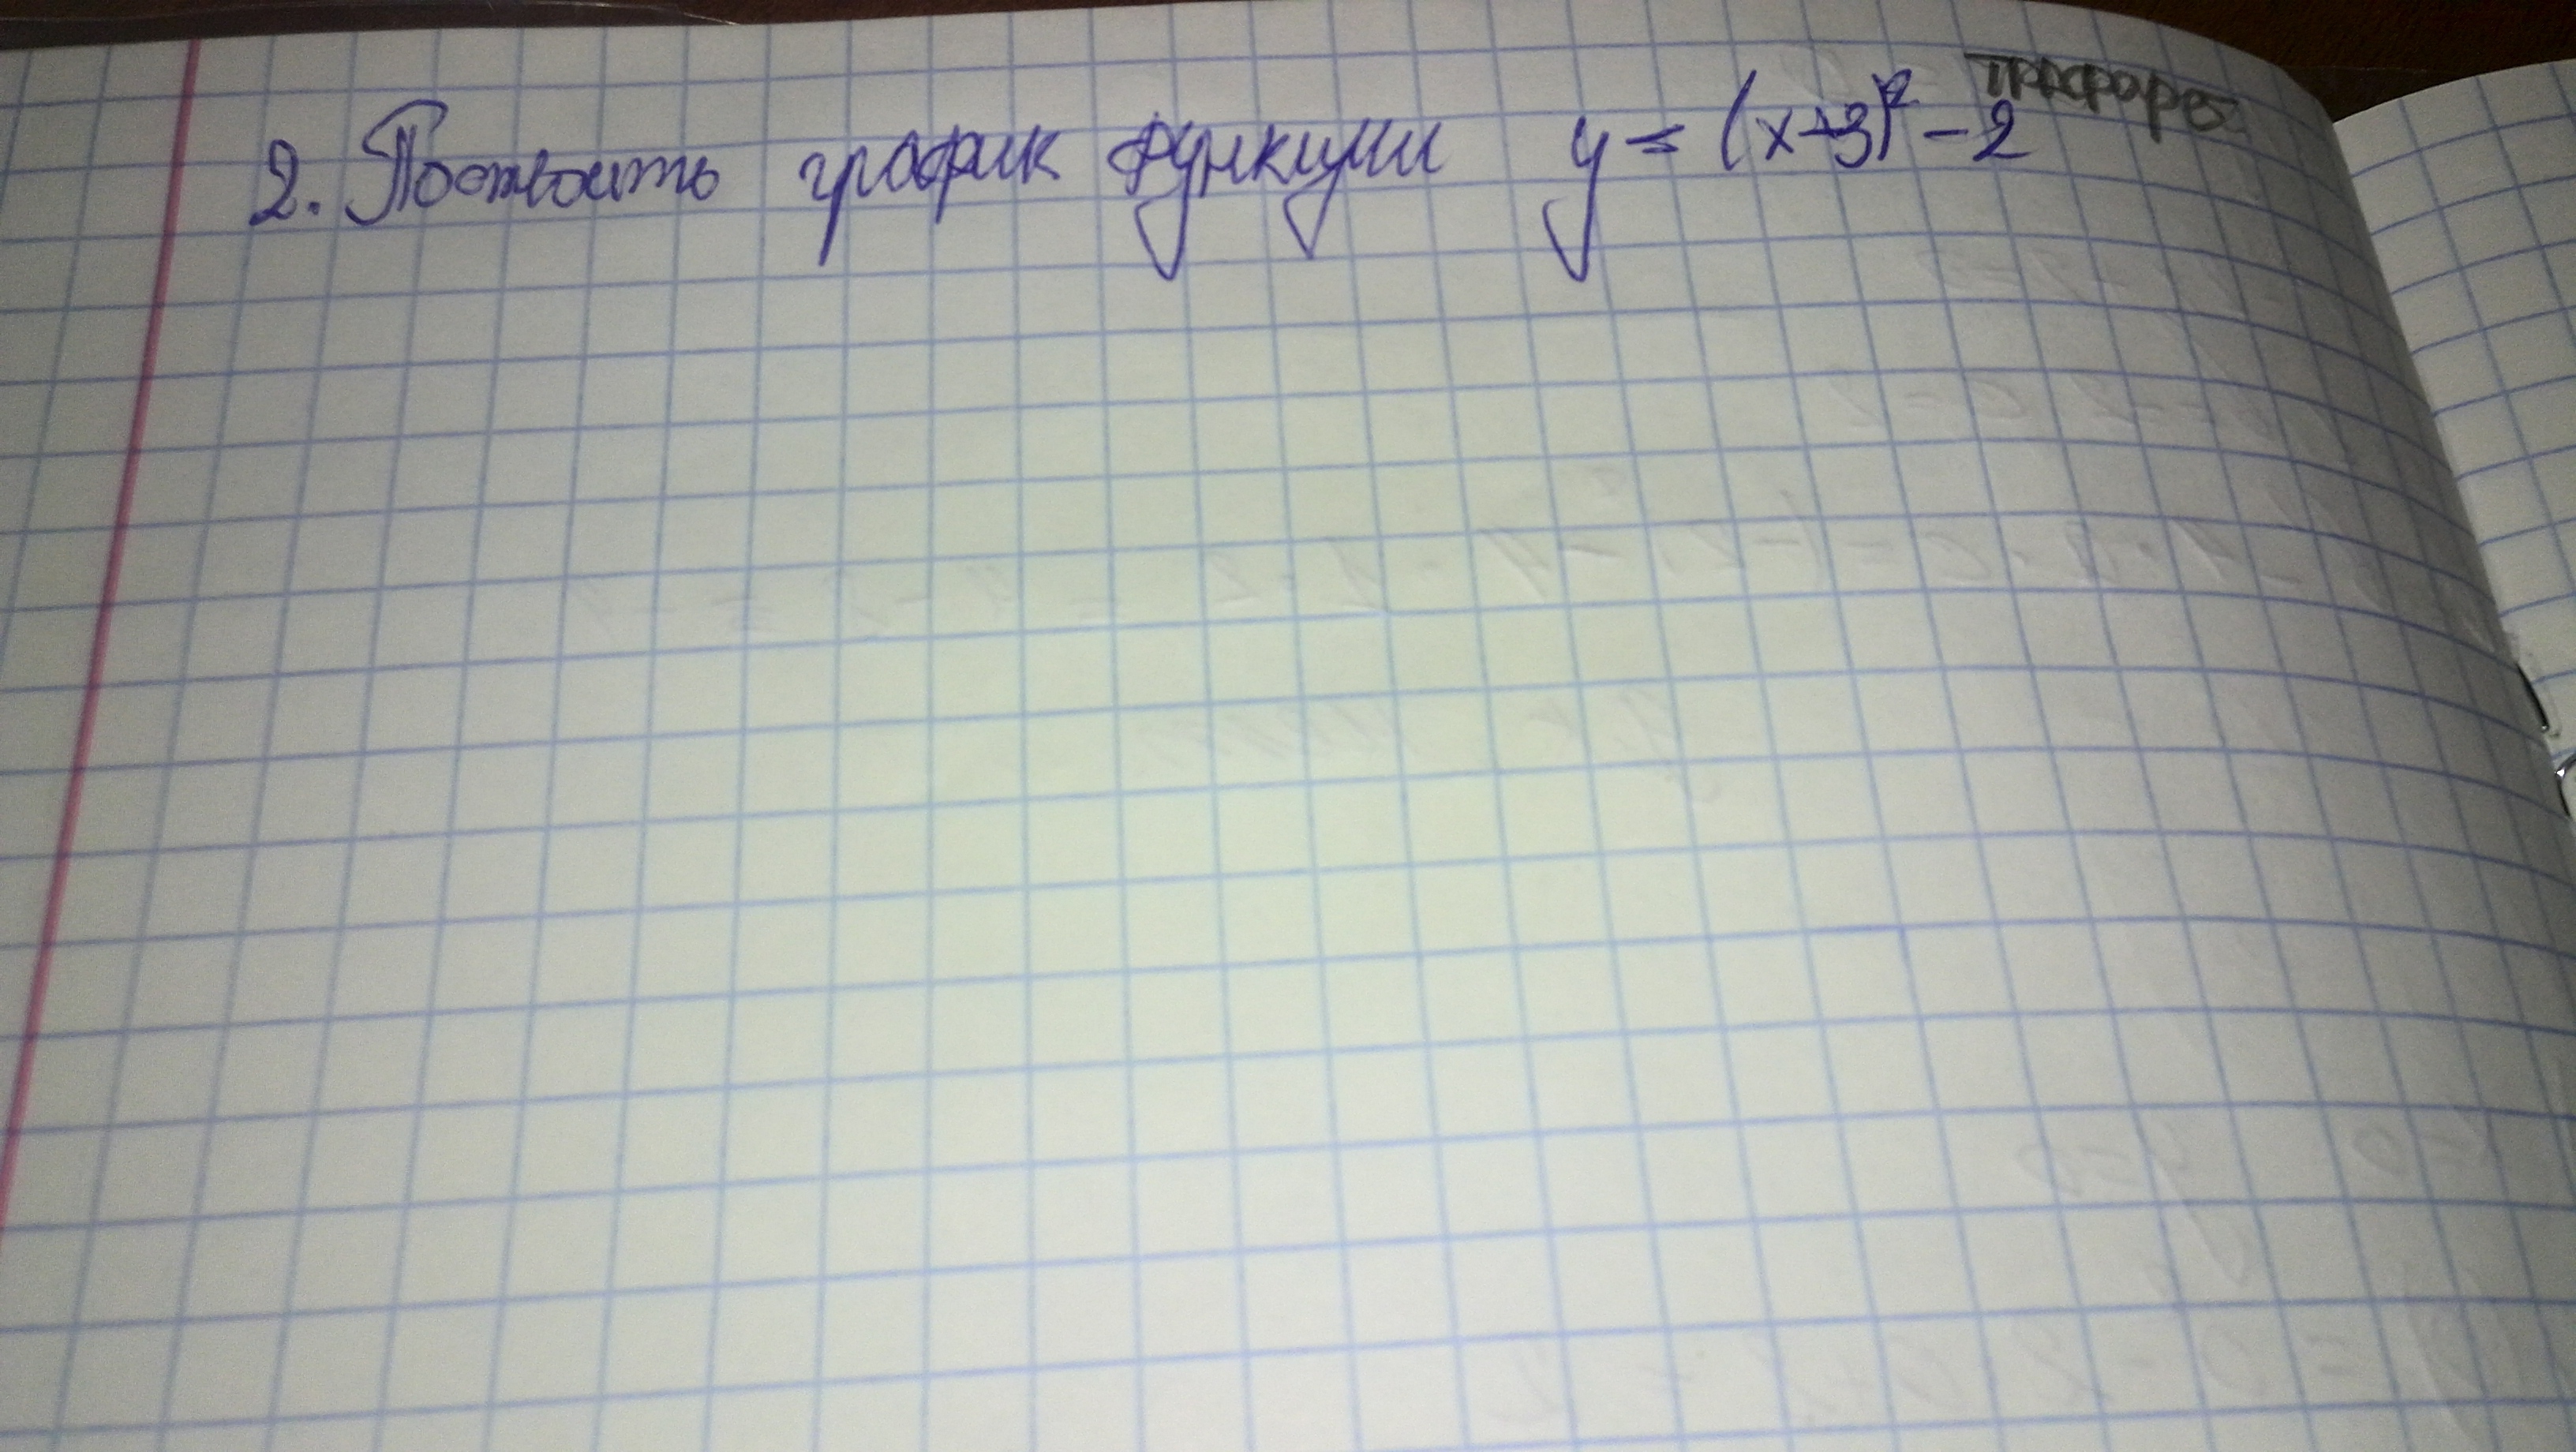 2. Построить график функции y = (x+3)² - 2